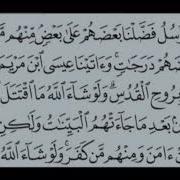 رُّسُلُ فَضَّلْنَا بَعْضَهُمْ عَلَىٰ بَعْضٍ مِّنْهُم
ضَهُمْ دَرَجَٰتٍ ۚ وَءَاتَيْنَا عِيسَى ٱبْنَ مَرْيَمَ
بِرُوحِ ٱلْقُدُسِ ۗ وَلَوْ شَآءَ ٱللَّهُ مَا ٱقْتَتَلَ
بَعْدِ مَا جَآءَتْهُمُ ٱلْبَيِّنَٰتُ وَلَٰكِنِ
ءَامَنَ وَمِنْهُم مَّن كَفَرَ ۚ وَلَوْ شَآءَ ٱللَّهُ